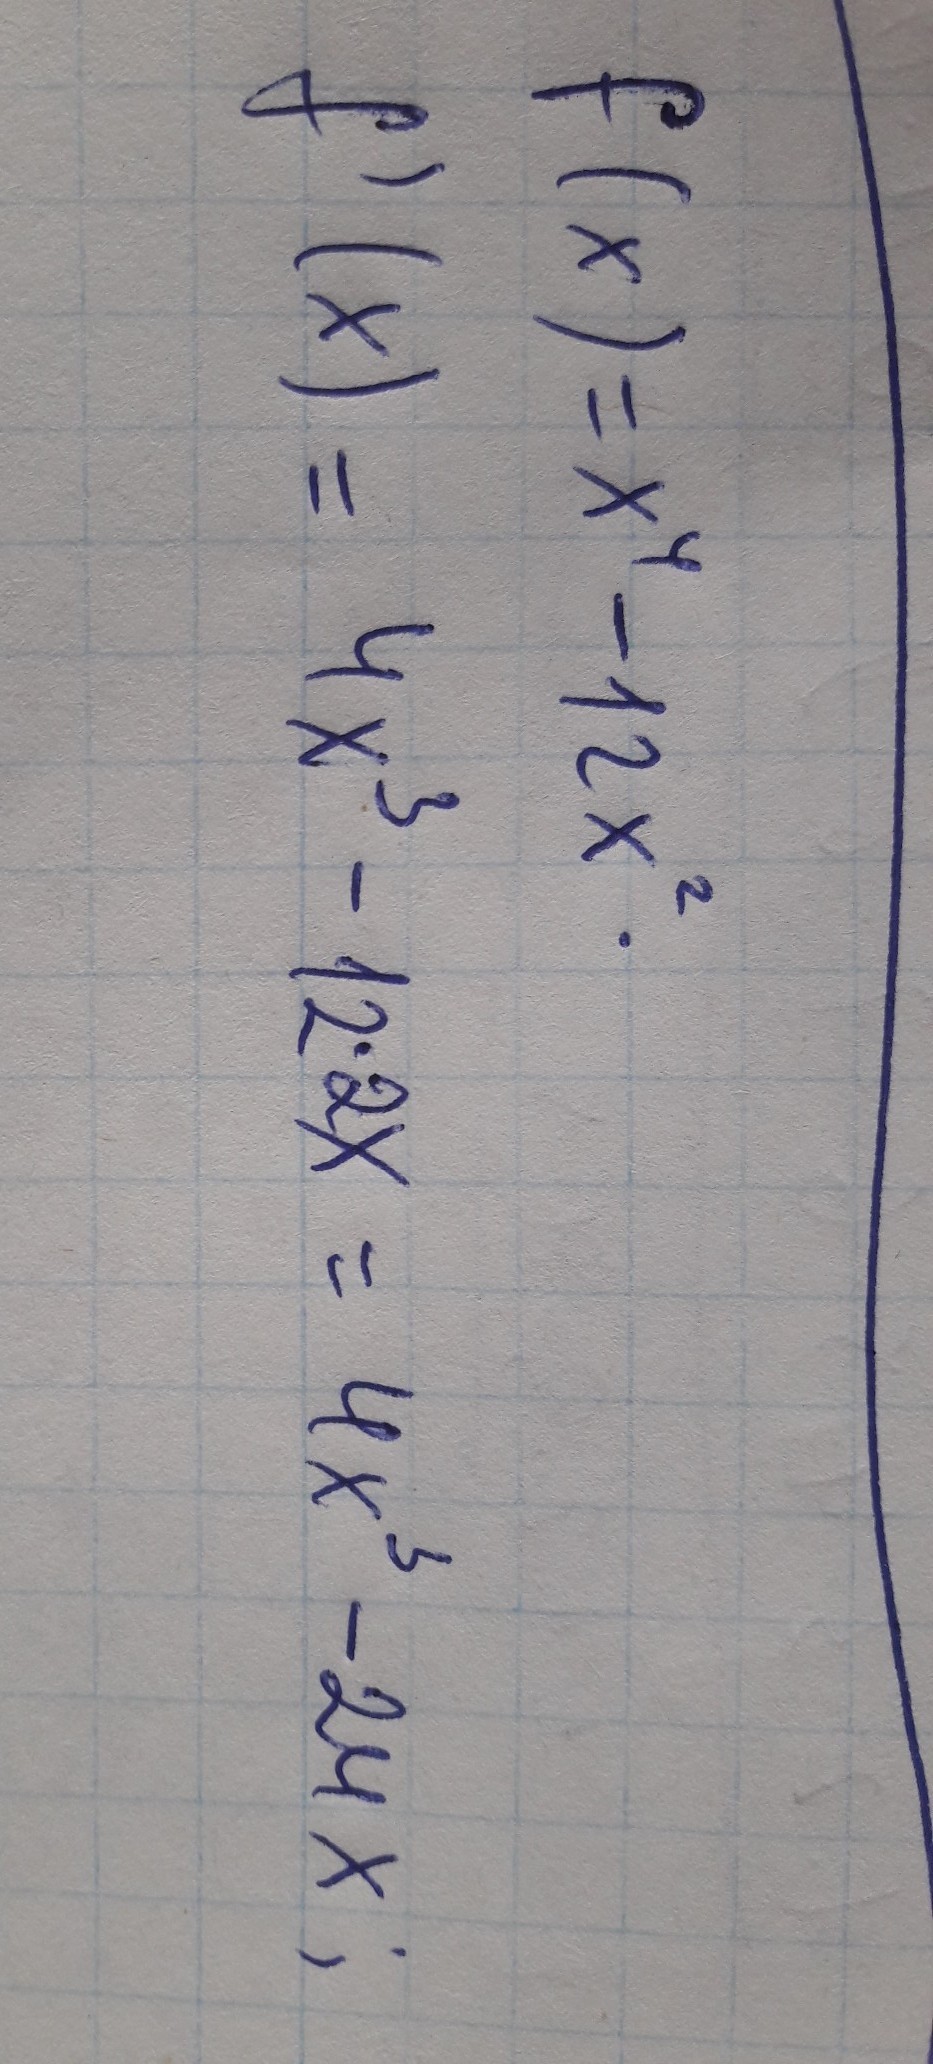 f(x) = x⁴ - 12x².
f'(x) = 4x³ - 12·2x = 4x³ - 24x;